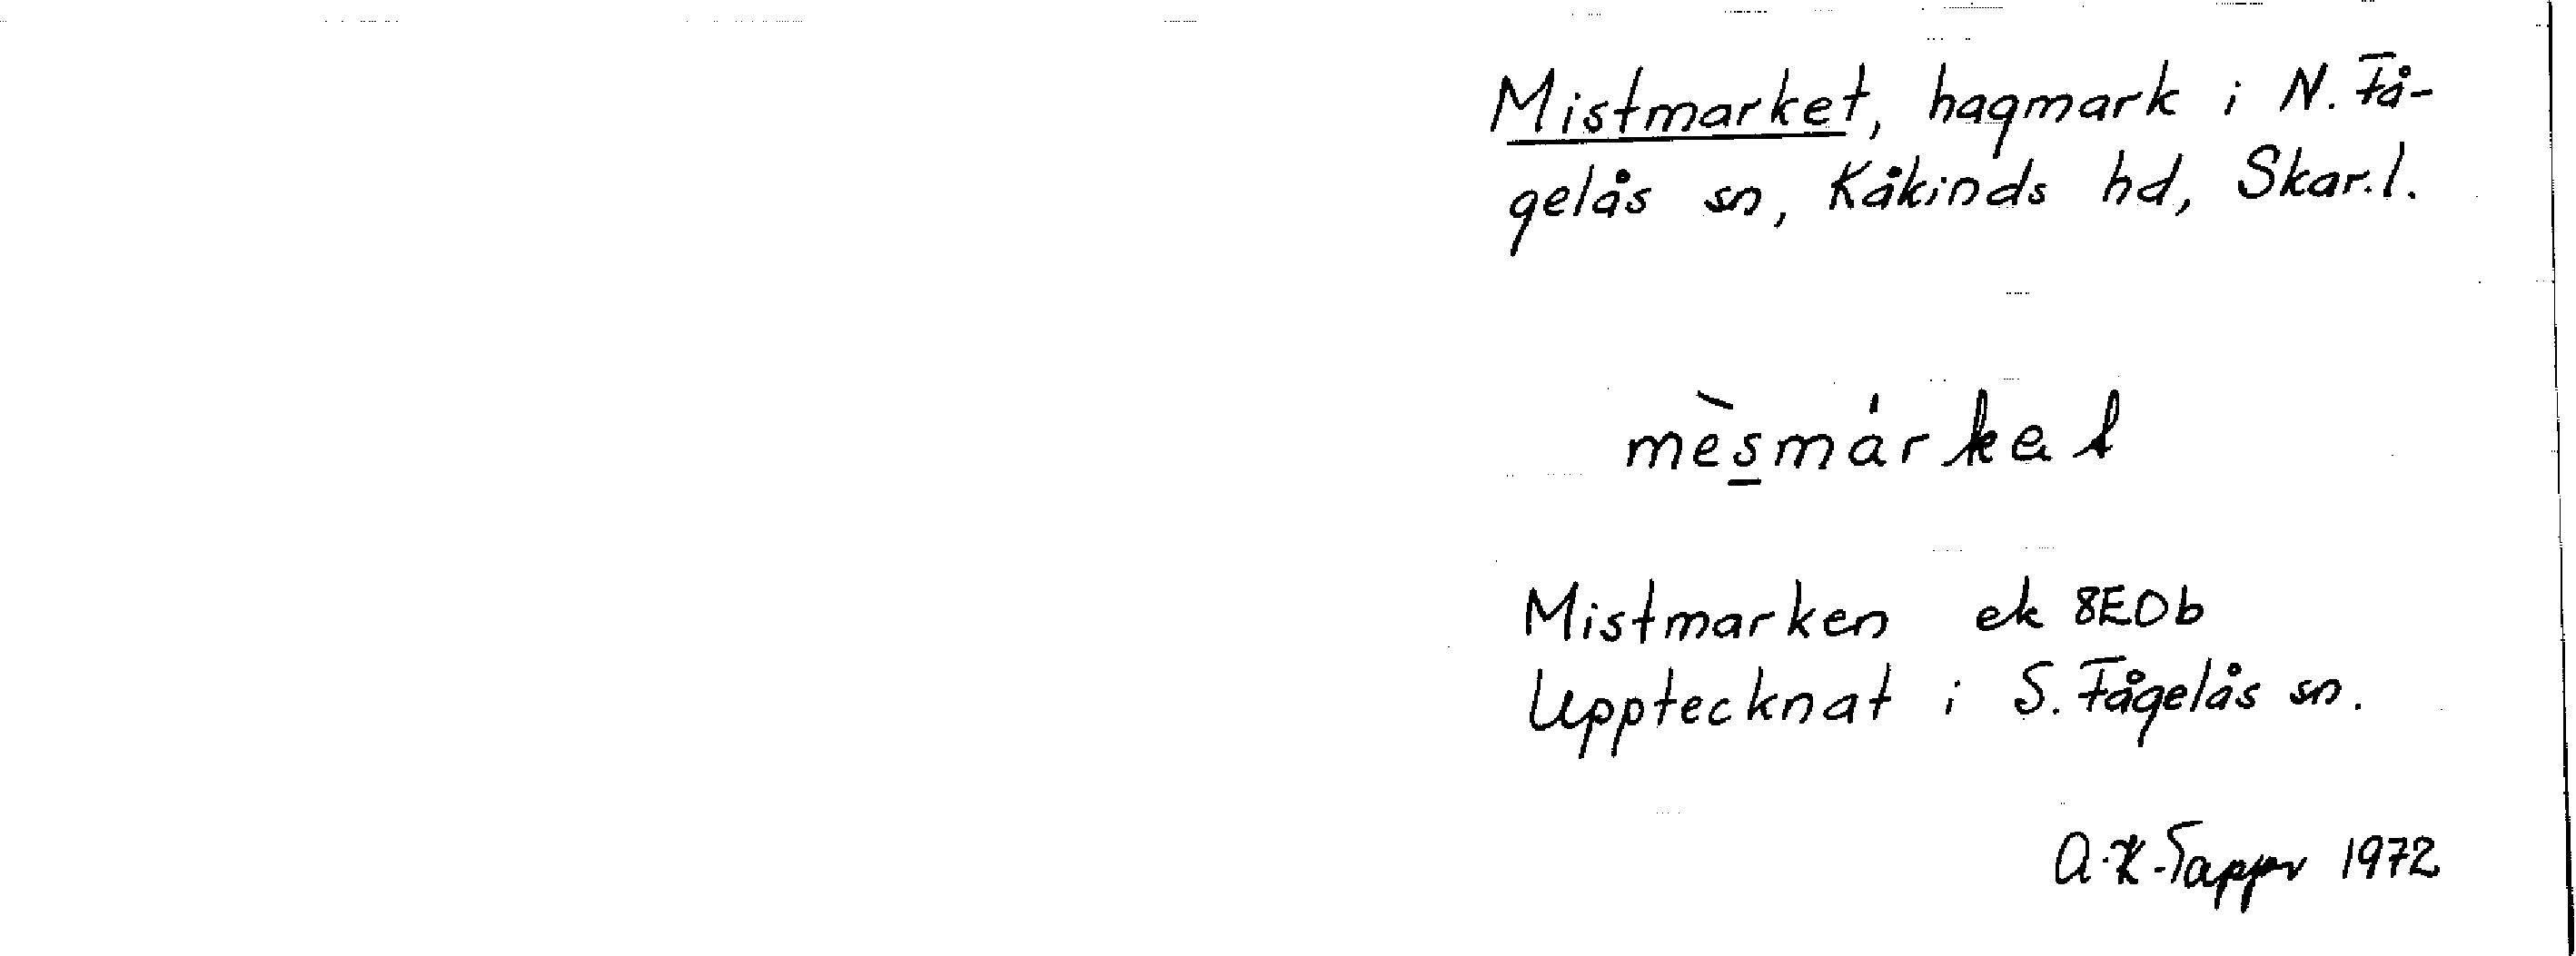 Mistmarket, hagmark i N. Få-
gelås sn, Kåkinds hd, Skar.l.
mèsmárket
Mistmarken ek 8E0b
Upptecknat i S. Fågelås sn.
A-K. Tapper 1972